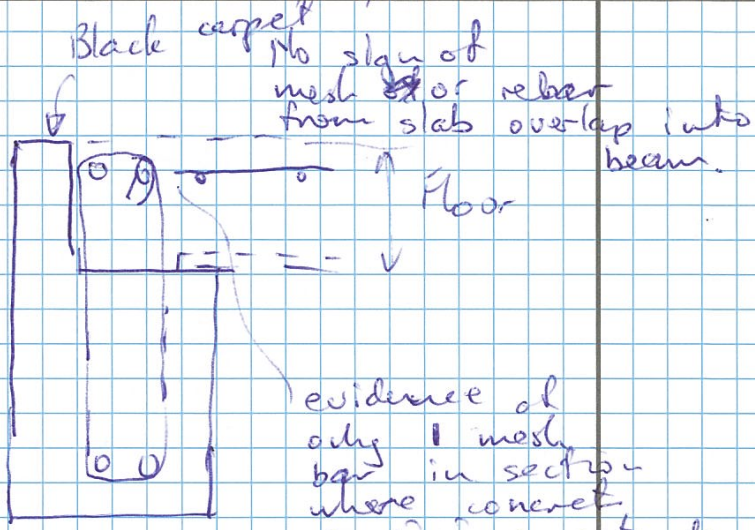 Black carpet
No sign of
mesh or rebar
from slab overlap into
beam.
Floor
evidence of
only 1 mesh
bar in section
where concret